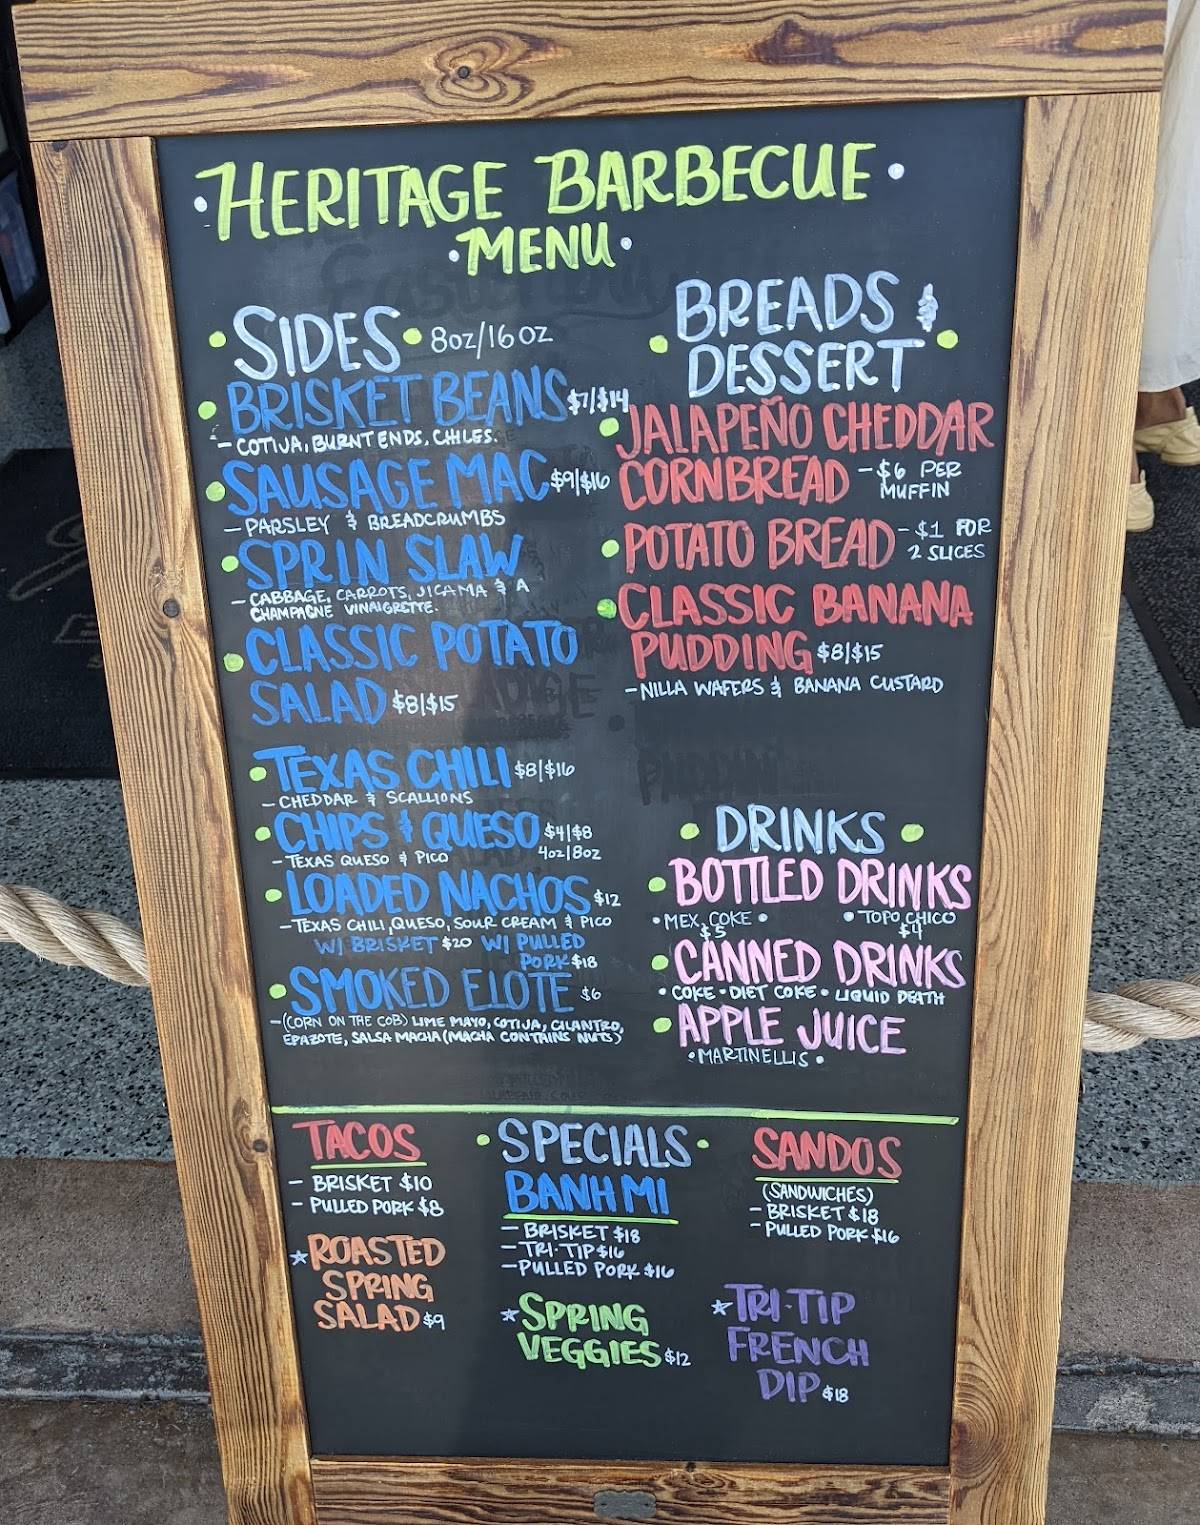 HERITAGE BARBECUE
MENU
SIDES 8oz/16oz
BRISKET BEANS $7/$14
- COTIJA, BURNT ENDS, CHILES.
SAUSAGE MAC $9|$16
- PARSLEY & BREADCRUMBS
SPRIN SLAW
- CABBAGE, CARROTS, JICAMA & A
CHAMPAGNE VINAIGRETTE.
CLASSIC POTATO
SALAD $8|$15
TEXAS CHILI $8|$16
- CHEDDAR & SCALLIONS
CHIPS & QUESO $4|$8
- TEXAS QUESO & PICO 4oz|8oz
LOADED NACHOS $12
- TEXAS CHILI, QUESO, SOUR CREAM & PICO
W/ BRISKET $20 W/ PULLED
PORK $18
SMOKED ELOTE $6
- (CORN ON THE COB) LIME MAYO, COTIJA, CILANTRO,
EPAZOTE, SALSA MACHA (MACHA CONTAINS NUTS)
BREADS &
DESSERT
JALAPEÑO CHEDDAR
CORNBREAD - $6 PER
MUFFIN
POTATO BREAD - $1 FOR
2 SLICES
CLASSIC BANANA
PUDDING $8|$15
- NILLA WAFERS & BANANA CUSTARD
DRINKS
BOTTLED DRINKS
• MEX. COKE • • TOPO CHICO
$5 $4
CANNED DRINKS
• COKE • DIET COKE • LIQUID DEATH
APPLE JUICE
• MARTINELLIS •
TACOS
- BRISKET $10
- PULLED PORK $8
ROASTED
SPRING
SALAD $9
SPECIALS
BANH MI
- BRISKET $18
- TRI-TIP $16
- PULLED PORK $16
SPRING
VEGGIES $12
SANDOS
(SANDWICHES)
- BRISKET $18
- PULLED PORK $16
TRI-TIP
FRENCH
DIP $18